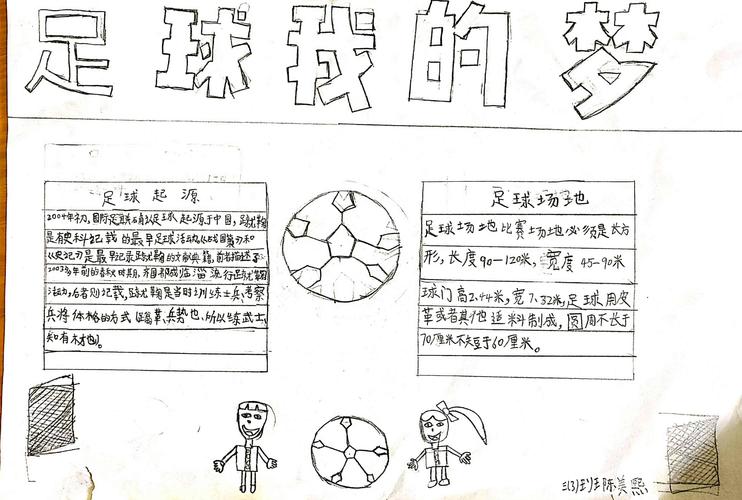 足球我的梦
足球起源
2004年初，国际足联确认足球起源于中国，蹴鞠
是有史料记载的最早足球活动。《战国策》和
《史记》是最早记录蹴鞠的文献典籍，前者描述了
2003多年前的春秋时期，齐国都城临淄流行蹴鞠
活动，后者则记载，蹴鞠是当时训练士兵、考察
兵将体格的方式（蹋鞠，兵势也，所以练武士，
知有材也）。
足球场地
足球场地比赛场地必须是长方
形，长度90—120米，宽度45-90米
球门高2.44米，宽7.32米，足球用皮
革或者其他适料制成，圆周不长于
70厘米不短于60厘米。
三(3)班陈美熙